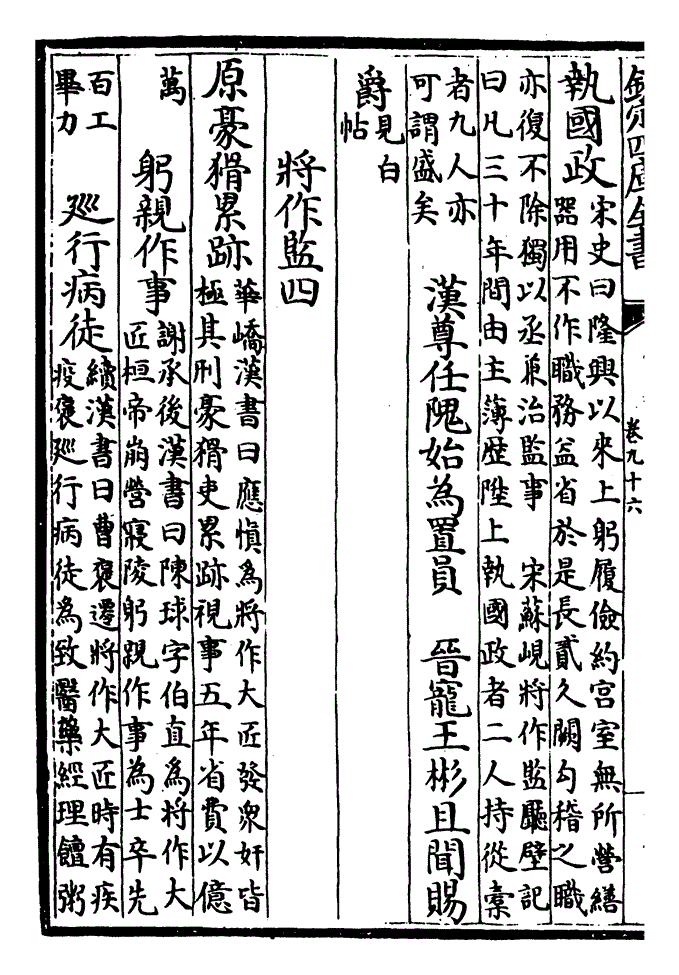 欽定四庫全書
卷九十六
執國政
宋史曰隆興以來上躬履儉約宮室無所營繕
器用不作職務益省於是長貳久闕勾稽之職
亦復不除獨以丞兼治監事　宋蘇峴將作監廳壁記
曰凡三十年間由主薄歷陞上執國政者二人持從橐
者九人亦
可謂盛矣
漢尊任隗始為置員　晉寵王彬且聞賜
爵
見白
帖
將作監四
原豪猾累跡
華嶠漢書曰應慎為將作大匠發衆奸皆
極其刑豪猾吏累跡視事五年省費以億
萬
躬親作事
謝承後漢書曰陳球字伯直為將作大
匠桓帝崩營寢陵躬親作事為士卒先
百工
畢力
巡行病徒
續漢書曰曹褒遷將作大匠時有疾
疫褒巡行病徒為致醫藥經理饘粥